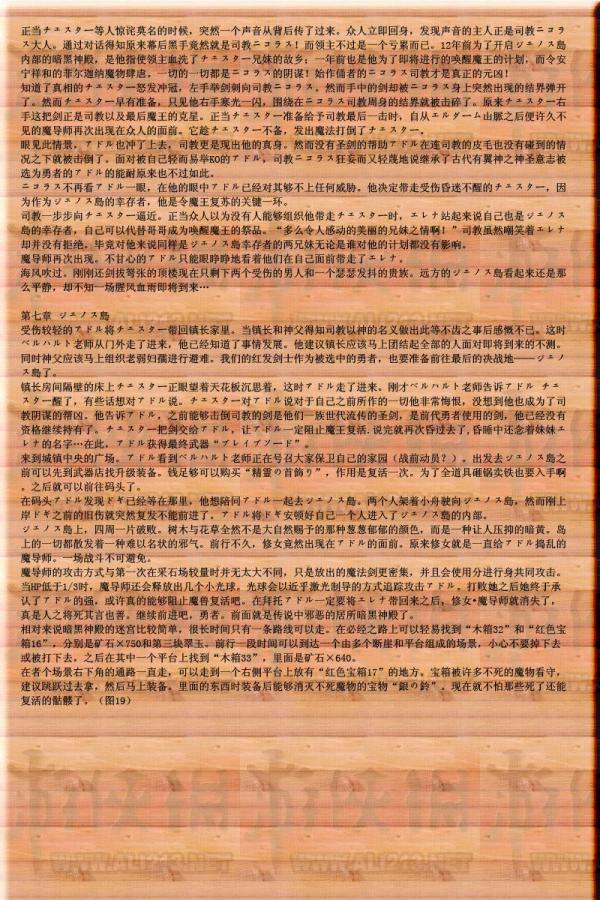 正当チェスター等人惊诧莫名的时候，突然一个声音从背后传了过来。众人立即回身，发现声音的主人正是司教ニコラ
ス大人。通过对话得知原来幕后黑手竟然就是司教ニコラス！而领主不过是一个亏累而已。12年前为了开启ジェノス島
内部的暗黑神殿，是他指使领主血洗了チェスター兄妹的故乡；一年前也是他为了即将进行的唤醒魔王的计划，而令安
宁祥和的菲尔迦纳魔物肆虐，一切的一切都是ニコラス的阴谋！始作俑者的ニコラス司教才是真正的元凶！
知道了真相的チェスター怒发冲冠，左手举剑刺向司教ニコラス。然而手中的剑却被ニコラス身上突然出现的结界弹开
了。然而チェスター早有准备，只见他右手寒光一闪，围绕在ニコラス司教周身的结界就被击碎了。原来チェスター右
手这把剑正是司教以及最后魔王的克星。正当チェスター准备给予司教最后一击时，自从エルダーム山脉之后便许久不
见的魔导师再次出现在众人的面前。它趁チェスター不备，发出魔法打倒了チェスター。
眼见此情景，アドル也冲了上去，司教更是现出他的真身。然而没有圣剑的帮助アドル在连司教的皮毛也没有碰到的情
况之下就被击倒了。面对被自己轻而易举KO的アドル，司教ニコラス狂妄而又轻蔑地说继承了古代有翼神之神圣意志被
选为勇者的アドル的能耐原来也不过如此。
ニコラス不再看アドル一眼，在他的眼中アドル已经对其够不上任何威胁。他决定带走受伤昏迷不醒的チェスター，因
为作为ジェノス島的幸存者，他是令魔王复苏的关键一环。
司教一步步向チェスター逼近。正当众人以为没有人能够组织他带走チェスター时，エレナ站起来说自己也是ジェノス
島的幸存者，自己可以代替哥哥成为唤醒魔王的祭品。“多么令人感动的美丽的兄妹之情啊！”司教虽然嘲笑着エレナ
却并没有拒绝。毕竟对他来说同样是ジェノス島幸存者的两兄妹无论是谁对他的计划都没有影响。
魔导师再次出现。不甘心的アドル只能眼睁睁地看着他们在自己面前带走了エレナ。
海风吹过。刚刚还剑拔弩张的顶楼现在只剩下两个受伤的男人和一个瑟瑟发抖的贵族。远方的ジェノス島看起来还是那
么平静，却不知一场腥风血雨即将到来…
第七章 ジェノス島
受伤较轻的アドル将チェスター带回镇长家里。当镇长和神父得知司教以神的名义做出此等不齿之事后感慨不已。这时
ベルハルト老师从门外走了进来，他已经知道了事情发展。他建议镇长应该马上团结起全部的人面对即将到来的不测。
同时神父应该马上组织老弱妇孺进行避难。我们的红发剑士作为被选中的勇者，也要准备前往最后的决战地——ジェノ
ス島了。
镇长房间隔壁的床上チェスター正眼望着天花板沉思着，这时アドル走了进来。刚才ベルハルト老师告诉アドル チェ
スター醒了，有些话想对アドル说。チェスター对アドル说对于自己之前所作的一切他非常悔恨，没想到他也成为了司
教阴谋的帮凶。他告诉アドル，之前能够击倒司教的剑是他们一族世代流传的圣剑，是前代勇者使用的剑，他已经没有
资格继续持有了。チェスター把剑交给アドル，让アドル一定阻止魔王复活.说完就再次昏过去了,昏睡中还念着妹妹エ
レナ的名字…在此，アドル获得最终武器“ブレイブソード”。
来到城镇中央的广场。アドル看到ベルハルト老师正在号召大家保卫自己的家园（战前动员？）。出发去ジェノス島之
前可以先到武器店找升级装备。钱足够可以购买“精霊の首飾り”，作用是复活一次。为了全道具砸锅卖铁也要入手啊
。之后就可以前往码头了。
在码头アドル发现ドギ已经等在那里，他想陪同アドル一起去ジェノス島。两个人架着小舟驶向ジェノス島，然而刚上
岸ドギ之前的旧伤就突然复发不能前进了。アドル将ドギ安顿好自己一个人进入了ジェノス島的内部。
ジェノス島上，四周一片破败。树木与花草全然不是大自然赐予的那种葱葱郁郁的颜色，而是一种让人压抑的暗黄。岛
上的一切都散发着一种难以名状的邪气。前行不久，修女竟然出现在アドル的面前。原来修女就是一直给アドル捣乱的
魔导师。一场战斗不可避免。
魔导师的攻击方式与第一次在采石场较量时并无太大不同，只是放出的魔法剑更密集，并且会使用分进行身共同攻击。
当HP低于1/3时，魔导师还会释放出几个小光球。光球会以近乎激光制导的方式追踪攻击アドル。打败她之后她终于承
认了アドル的强。或许真的能够阻止魔兽复活吧。在拜托アドル一定要将エレナ带回来之后，修女•魔导师就消失了，
真是人之将死其言也善。继续前进吧，勇者。前面就是传说中邪恶的居所暗黑神殿了。
相对来说暗黑神殿的迷宫比较简单，很长时间只有一条路线可以走。在必经之路上可以轻易找到“木箱32”和“红色宝
箱16”，分别是矿石×750和第三块翠玉。前行一段时间可以到达一个由多个断崖和平台组成的场景，小心不要掉下去
或被打下去，之后在其中一个平台上找到“木箱33”，里面是矿石×640。
在者个场景右下角的通路一直走，可以走到一个右侧平台上放有“红色宝箱17”的地方。宝箱被许多不死的魔物看守，
建议跳跃过去拿，然后马上装备。里面的东西时装备后能够消灭不死魔物的宝物“銀の鈴”。现在就不怕那些死了还能
复活的骷髅了，（图19）